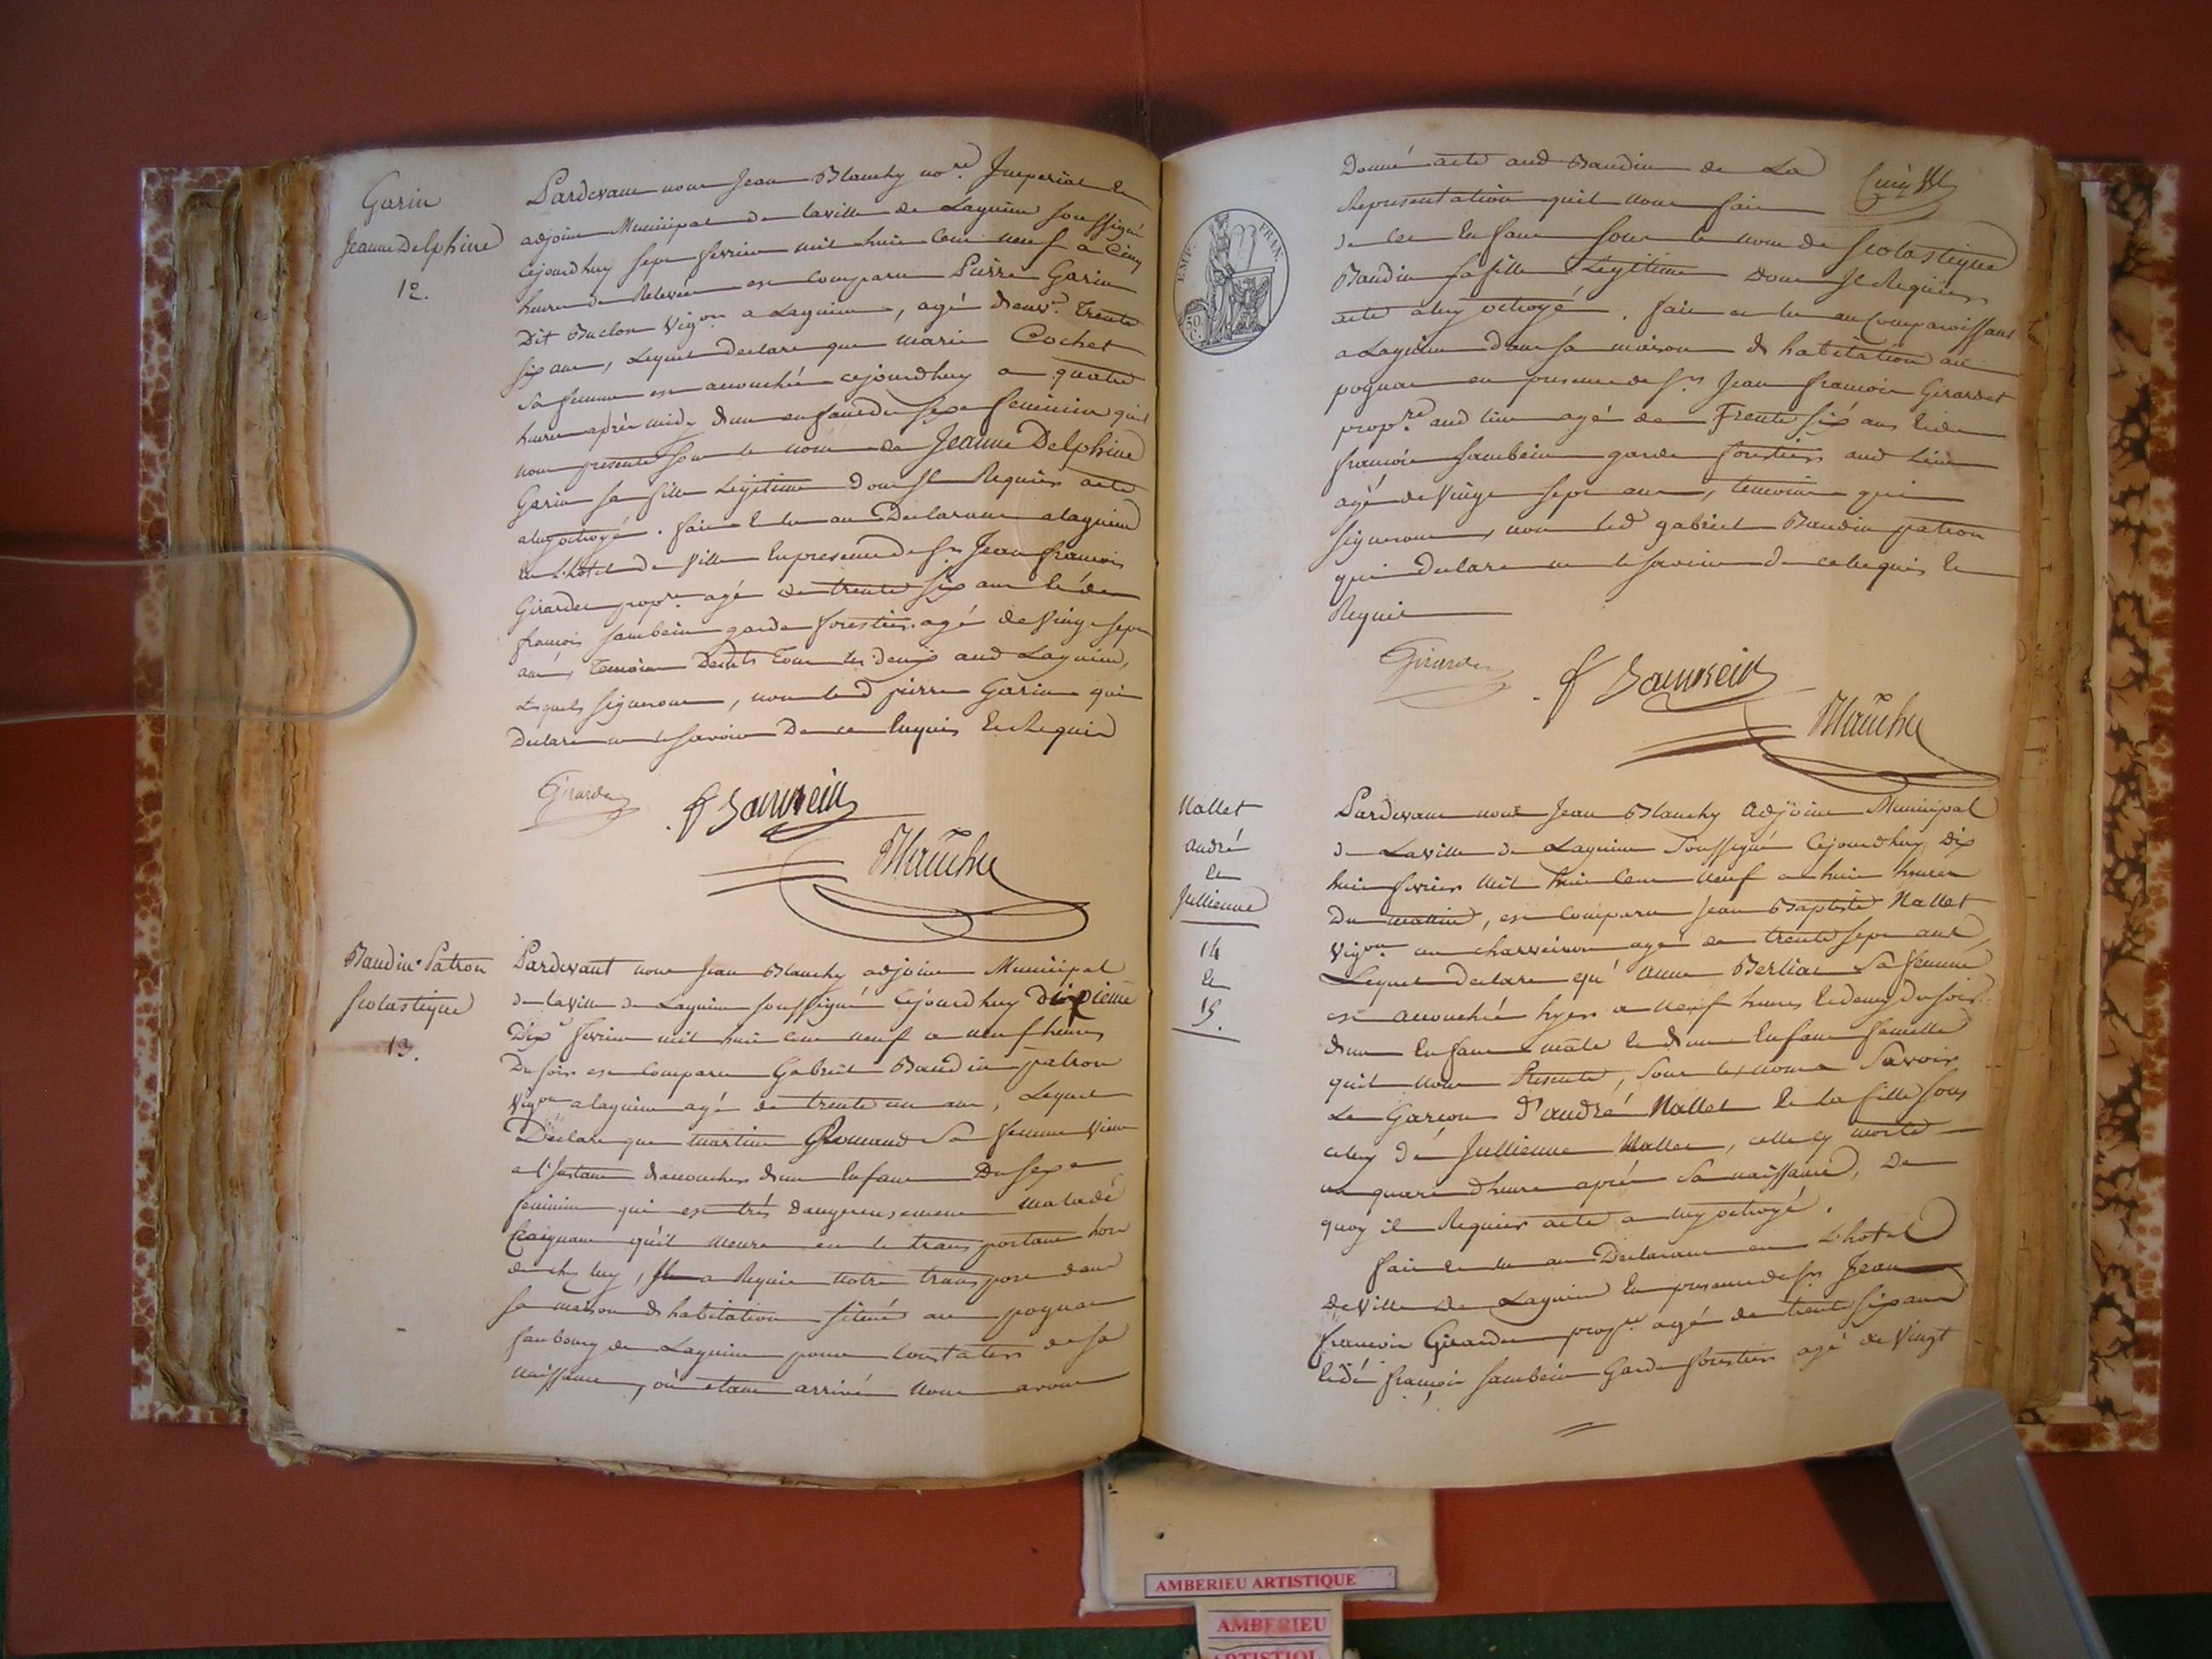 Garin
Jeanne Delphine
12.
Pardevant nous Jean Blanchy no.re Imperial et
adjoint Municipal de la ville de Lagnieu soussigné
cejourdhuy sept fevrier mil huit cent neuf a cinq
heures de Relevée est comparu Pierre Garin
Dit Buclon Vig.on a Lagnieu, agé d'env.n Trente
six ans, Lequel declare que marie Cochet
sa femme est accouchée cejourdhuy a quatre
heures après midy d'un enfant du sexe feminin qu'il
nous presente sous le nom de Jeanne Delphine
Garin sa fille Legitime dont Il Requiert acte
a luy octroyé. fait et lu au Declarant a lagnieu
en L'hotel de Ville En presence de Sr. Jean francois
Girardet prop.re agé de trente six ans et de
francois Sambein garde forestier agé de Vingt sept
ans, Temoins Tous les deux aud Lagnieu,
Lesquels signeront, non led pierre Garin qui
Declare ne le savoir De ce Enquis et Requis
Girardet
f Sambein
Blanchy
Baudin Patron
Scolastique
13.
Pardevant nous Jean Blanchy adjoint Municipal
de la ville de Lagnieu soussigné Cejourdhuy dixieme
Dix fevrier mil huit cent neuf a neuf heures
Du soir est comparu Gabriel Baudin patron
Vigon a lagnieu agé de trente un ans, Lequel
Déclare que martine Romand Sa femme vient
a l'Instant d'accoucher d'un Enfant Du sexe
feminin qui est très dangereusement malade
Craignant qu'il meure en le transportant hors
de chez luy, Il a Requis notre transport dans
sa maison d'habitation située au pognat
faubourg de Lagnieu pour Constater de sa
naissance, où étant arrivé nous avons
EMP. FRAN.
50 C.
Donné acte aud Baudin de La
Representation qu'il nous fait
de cet Enfant sous le nom de Scolastique
Baudin sa fille Legitime dont Il Requiert
acte a luy octroyé. fait et lu au Comparoissant
a Lagnieu dans sa maison d'habitation au
pognat en presence de Sr. Jean francois Girardet
prop.re aud lieu agé de Trente six ans et de
francois Sambein garde forestier aud Lieu
agé de Vingt sept ans, temoins qui
signeront, non led gabriel Baudin patron
qui Declare ne le savoir de ce Enquis et
Requis
Girardet
f Sambein
Blanchy
Nallet
André
et
Jullienne
14
et
15.
Pardevant nous Jean Blanchy Adjoint Municipal
de La ville de Lagnieu Soussigné Cejourdhuy, Dix
huit fevrier Mil huit Cent Neuf a huit heures
Du matin, est Comparu Jean Baptiste Nallet
Vigon au charveiron agé de trente sept ans,
Lequel declare qu'anne Berliat Sa femme
est accouchée hyer a Neuf heures et demy du soir
d'un Enfant mâle et d'un Enfant femelle
qu'il nous Presente, sous les noms Savoir
Le Garcon D'andré Nallet et la fille sous
celuy de Jullienne Nallet, celle cy morte
un quart d'heure après sa naissance, De
quoy il Requiert acte a luy octroyé.
fait et lu au Declarant en L'hotel
de Ville de Lagnieu En presence de Sr. Jean
francois Girardet prop.re agé de trente six ans
et de francois Sambein Garde forestier agé de Vingt
AMBERIEU ARTISTIQUE
AMBERIEU